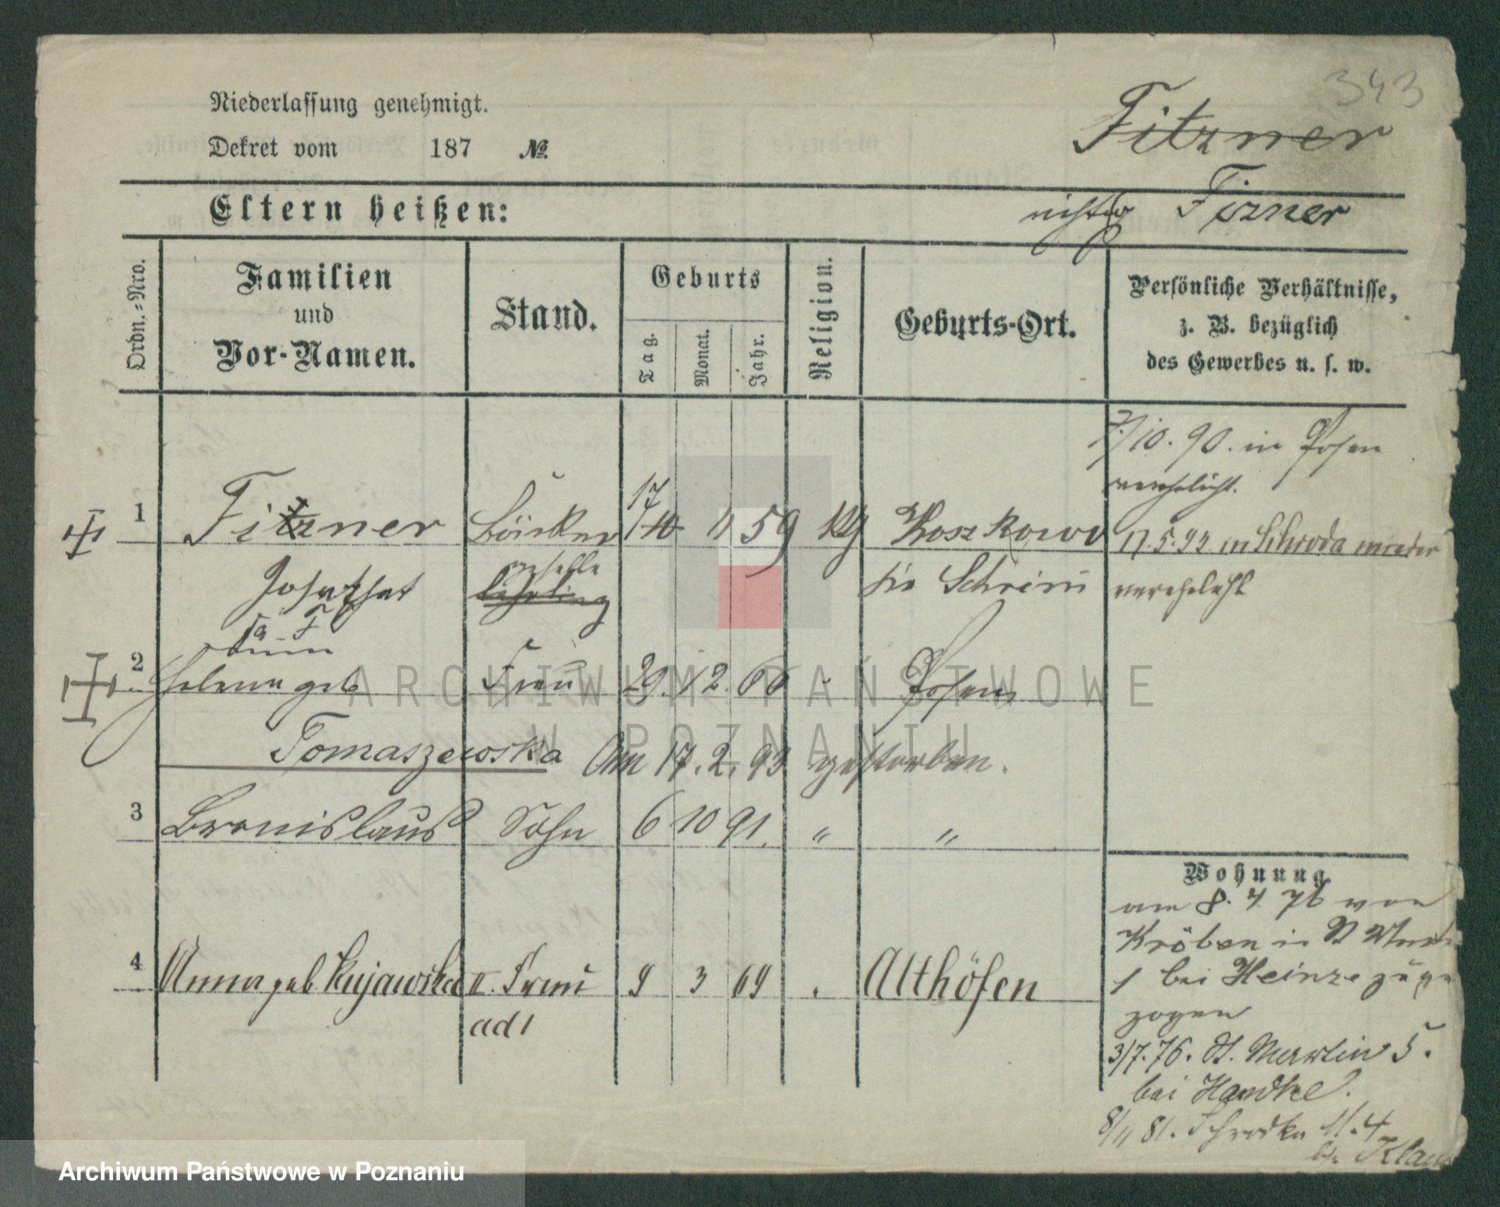 343
Niederlassung genehmigt.
Dekret vom 187 №
Fitzner
Eltern heißen:
richtig Fizner
Ordn.-Nro.
Familien
und
Vor-Namen.
Stand.
Geburts
Tag.
Monat.
Jahr.
Religion.
Geburts-Ort.
Persönliche Verhältnisse,
z. B. bezüglich
des Gewerbes u. s. w.
7/10. 90. in Posen
verehelicht.
1 Fitzner Böttcher 17 10 11 59 kg Koszkowo
17.5.93 in Schroda wieder
verehelicht
Josaphat geselle Lehrling bie Schrimm
2 Helena geb Frau 29. 12. 66 " Posen
Tomaszewska Am 17. 2. 93 gestorben.
3 Bronislaus Sohn 6 10 91. " "
Wohnung
am 8. 4. 76 von
Kröben in
1 bei Heinze zuge
zogen
4 Anna geb Kujawska II. Frau 9 3 69 Althöfen
ad 1
3/7. 76. St. Martin 5.
bei Handke.
8/11 81. Schrodka 11. 4
ARCHIWUM PAŃSTWOWE
W POZNANIU
Archiwum Państwowe w Poznaniu